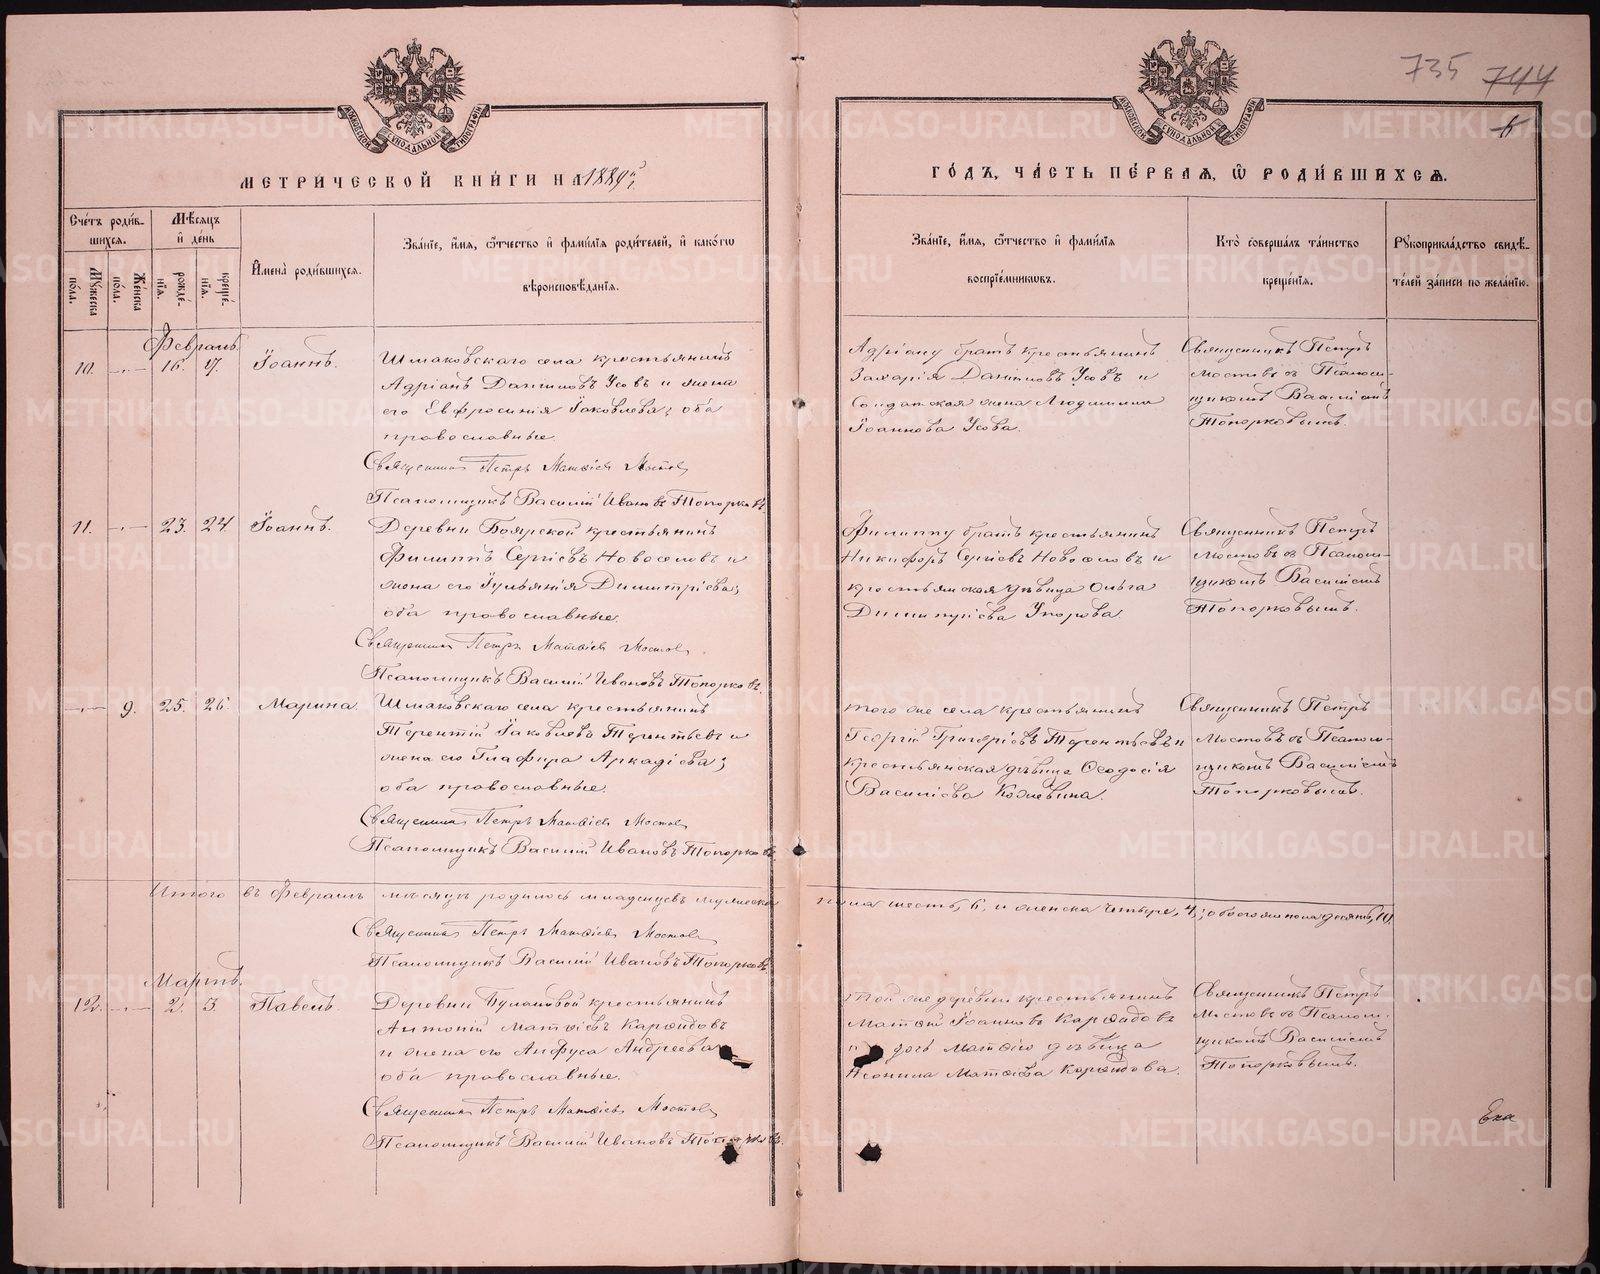 735 744
6
МОСКОВСКОЙ СѴНОДАЛЬНОЙ ТИПОГРАФІИ
МОСКОВСКОЙ СѴНОДАЛЬНОЙ ТИПОГРАФІИ
МЕТРИ́ЧЕСКОЙ КНИ́ГИ НА 1889й
ГО́ДЪ, ЧА́СТЬ ПЕ́РВАѦ, Ѿ РОДИ́ВШИХСѦ.
Сче́тъ роди́в-
шихся.
Мѣ́сяцъ
и де́нь
Мꙋжеска по́ла.
Же́нска по́ла.
рожде́-нїя.
креще́-нїя.
Имена̀ роди́вшихся.
Зва́нїе, и́мя, ѻ́тчество и фами́лїя роди́телей, и како́гѡ
вѣроисповѣ́данїя.
Зва́нїе, и́мя, ѻ́тчество и фами́лїя
воспрїе́мникѡвъ.
Кто̀ соверша́лъ та́инство
креще́нїя.
Рꙋкоприкла́дство свидѣ́-
телей за́писи по жела́нїю.
Февраль
10. -„- 16. 17. Іоаннъ.
Шмаковскаго села крестьянинъ
Адріанъ Даніиловъ Усовъ и жена
его Евфросинія Іаковлева; оба
православные.
Священникъ Петръ Матѳіевъ Мостовъ
Псаломщикъ Василій Ивановъ Топорковъ
Адріану братъ крестьянинъ
Захарія Даніиловъ Усовъ и
Солдатская жена Людмила
Іоаннова Усова.
Священникъ Петръ
Мостовъ съ Псалом-
щикомъ Василіемъ
Топорковымъ.
11. -„- 23. 24 Іоаннъ.
Деревни Боярской крестьянинъ
Филиппъ Сергіевъ Новоселовъ и
жена его Іульянія Димитріева;
оба православные.
Священникъ Петръ Матѳіевъ Мостовъ
Псаломщикъ Василій Ивановъ Топорковъ
Филиппу братъ крестьянинъ
Никифоръ Сергіевъ Новоселовъ и
крестьянская дѣвица Ольга
Димитріева Упорова.
Священникъ Петръ
Мостовъ съ Псалом-
щикомъ Василіемъ
Топорковымъ.
-„- 9. 25. 26. Марина.
Шмаковскаго села крестьянинъ
Терентій Іаковлевъ Терентьевъ и
жена его Глафира Аркадіева;
оба православные.
Священникъ Петръ Матѳіевъ Мостовъ
Псаломщикъ Василій Ивановъ Топорковъ
того же села крестьянинъ
Георгій Григоріевъ Терентьевъ и
крестьянская дѣвица Ѳеодосія
Василіева Кожевина.
Священникъ Петръ
Мостовъ съ Псалом-
щикомъ Василіемъ
Топорковымъ.
Итого въ Февралѣ мѣсяцѣ родилось младенцевъ мужеска
пола шесть, 6, и женска четыре, 4; обоего пола десять, 10.
Священникъ Петръ Матѳіевъ Мостовъ
Псаломщикъ Василій Ивановъ Топорковъ
Мартъ.
12. -„- 2. 3. Павелъ.
Деревни Булановой крестьянинъ
Антоній Матѳіевъ
и жена его Анфуса Андреева
оба православные.
Священникъ Петръ Матѳіевъ Мостовъ
Псаломщикъ Василій Ивановъ Топорковъ
Той же деревни крестьянинъ
Матѳій Іоанновъ
и дочь Матѳію дѣвица
Неонила Матѳіева
Священникъ Петръ
Мостовъ съ Псалом-
щикомъ Василіемъ
Топорковымъ.
Ека
METRIKI.GASO-URAL.RU